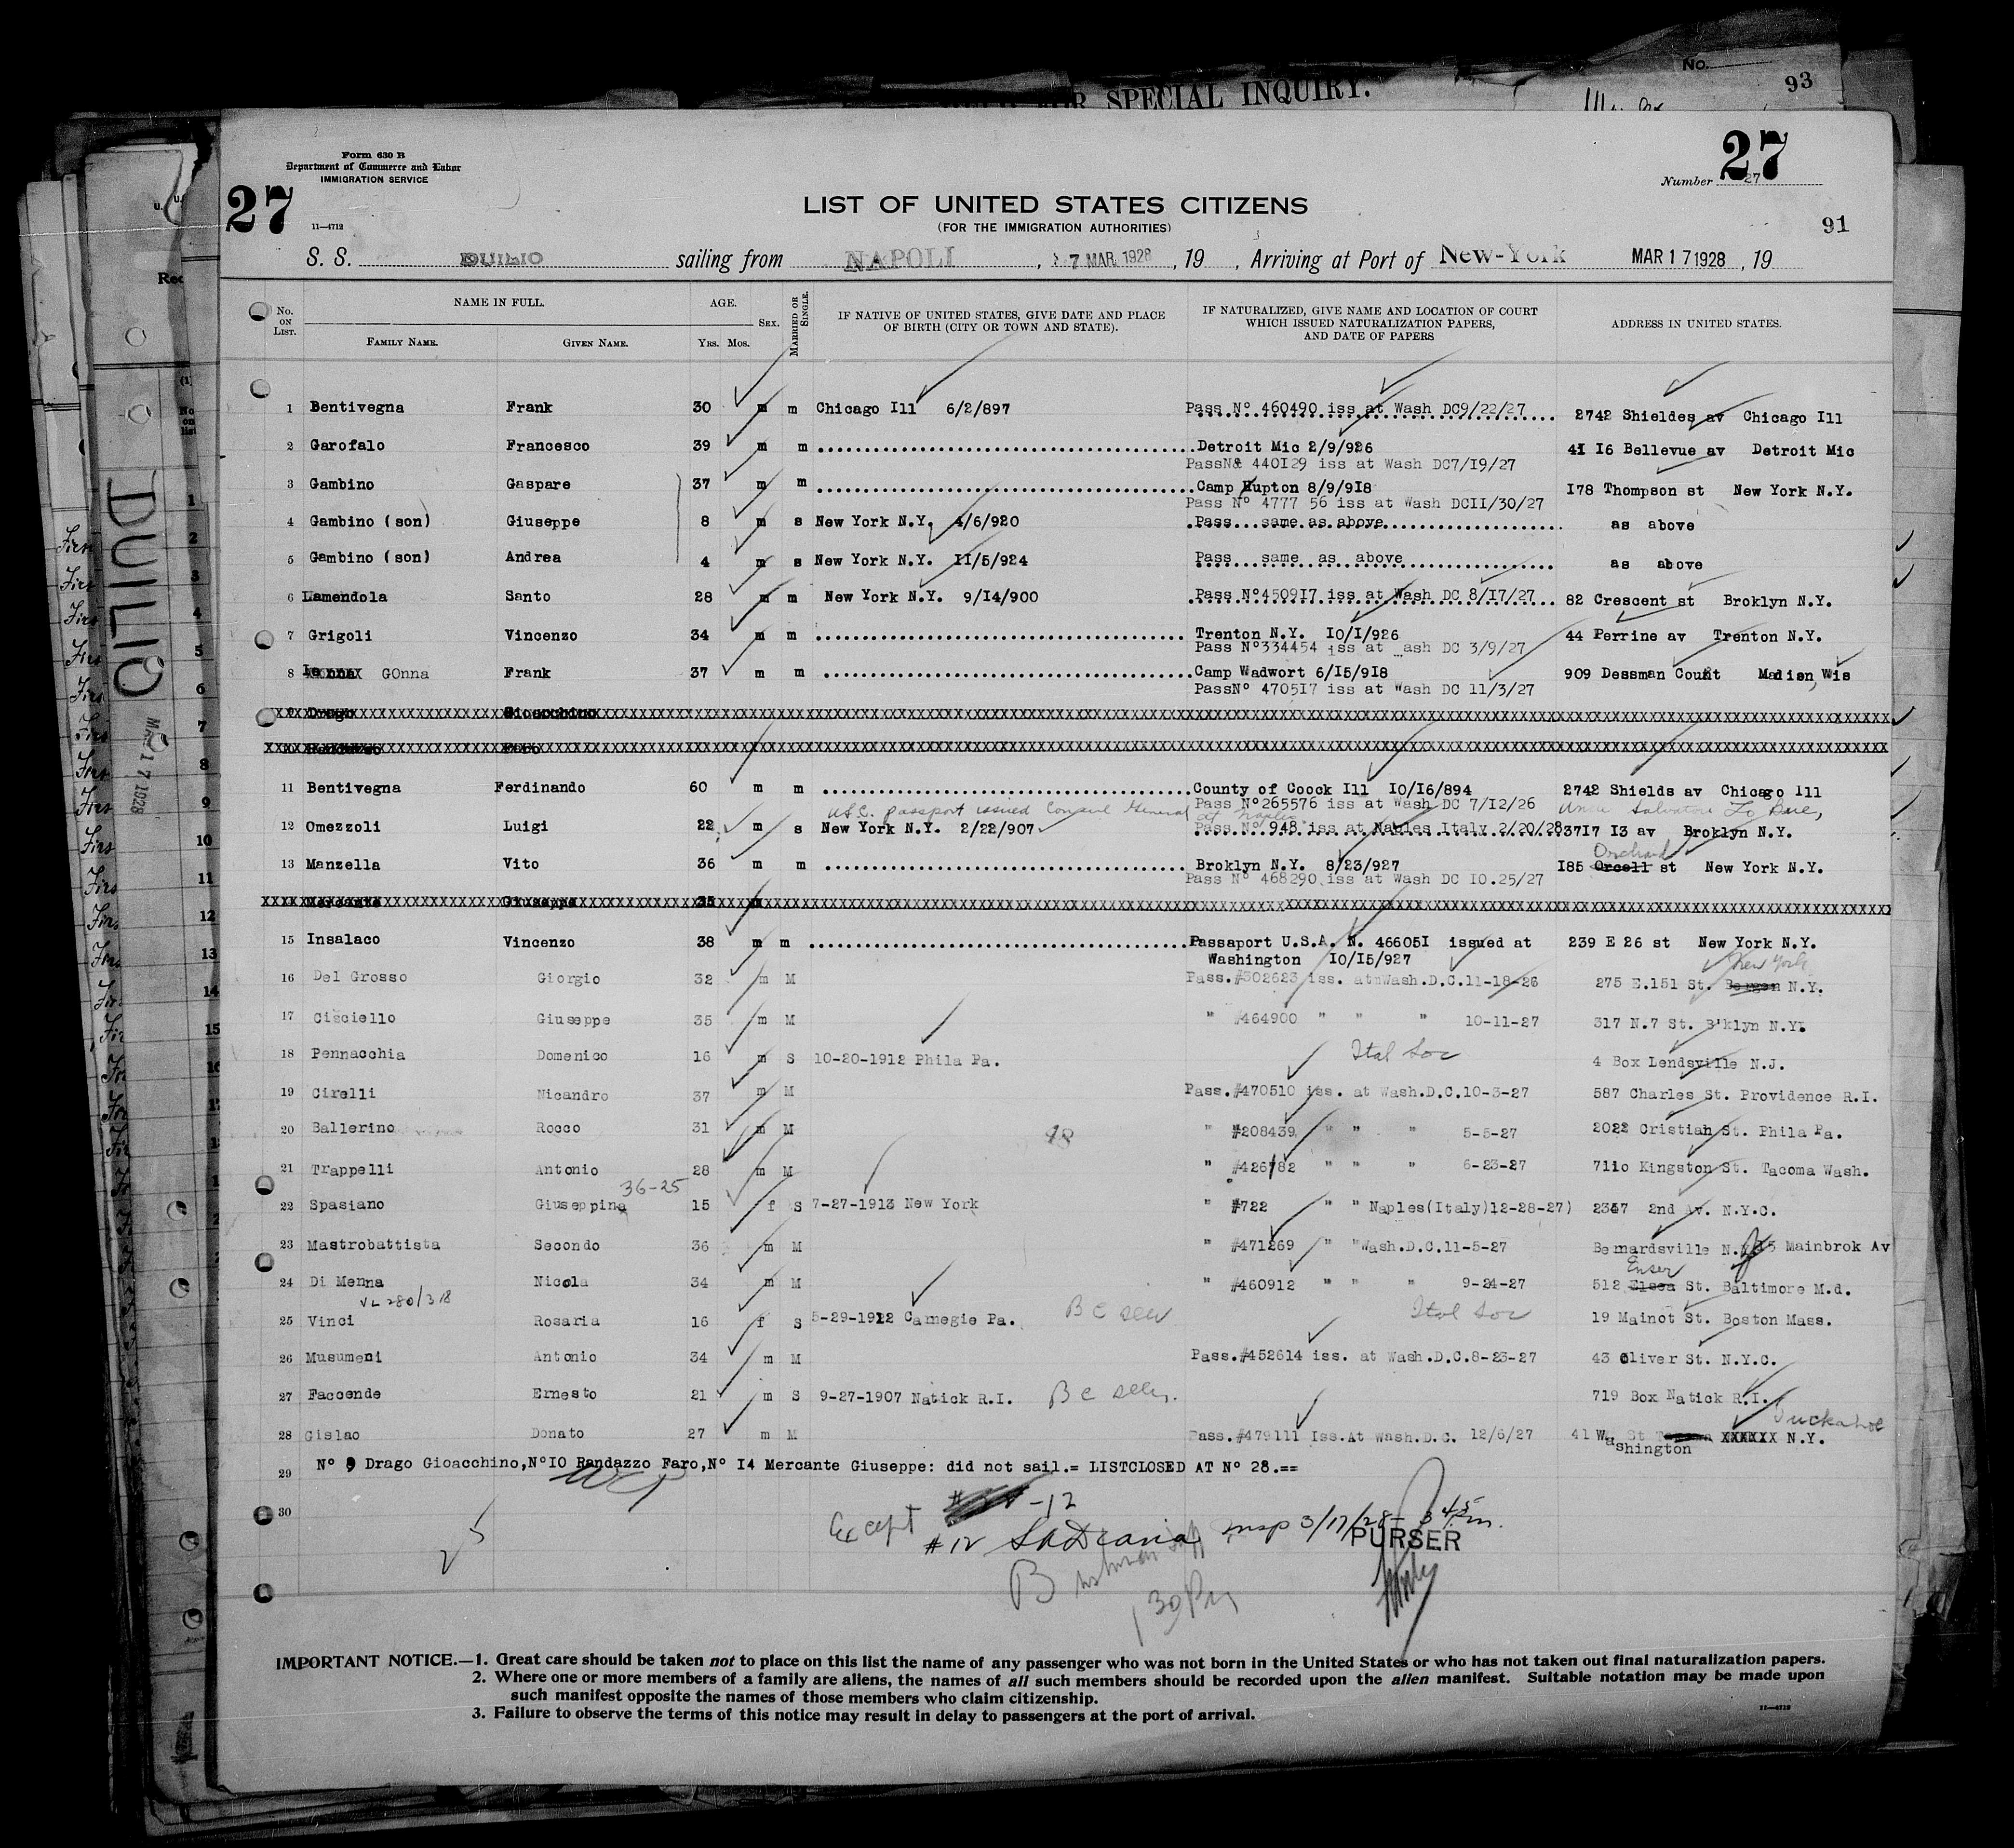 No.
93
FOR SPECIAL INQUIRY.
Form 630 B
Department of Commerce and Labor
IMMIGRATION SERVICE
27
27
Number 27
LIST OF UNITED STATES CITIZENS
(FOR THE IMMIGRATION AUTHORITIES)
11—4712
91
S. S. DUILIO sailing from NAPOLI, 7 MAR. 1928, 19 , Arriving at Port of New-York MAR 17 1928, 19
No. ON LIST.
NAME IN FULL.
FAMILY NAME. GIVEN NAME.
AGE.
YRS. MOS.
SEX.
MARRIED OR SINGLE.
IF NATIVE OF UNITED STATES, GIVE DATE AND PLACE OF BIRTH (CITY OR TOWN AND STATE).
IF NATURALIZED, GIVE NAME AND LOCATION OF COURT WHICH ISSUED NATURALIZATION PAPERS, AND DATE OF PAPERS
ADDRESS IN UNITED STATES.
1 Bentivegna Frank 30 m m Chicago Ill 6/2/897 Pass Nº 460490 iss at Wash DC9/22/27 2742 Shieldes av Chicago Ill
2 Garofalo Francesco 39 m m Detroit Mic 2/9/926 4I I6 Bellevue av Detroit Mic
PassN& 440I29 iss at Wash DC7/I9/27
3 Gambino Gaspare 37 m m Camp Hupton 8/9/9I8 I78 Thompson st New York N.Y.
Pass Nº 4777 56 iss at Wash DCII/30/27
4 Gambino (son) Giuseppe 8 m s New York N.Y. 4/6/920 Pass same as above as above
5 Gambino (son) Andrea 4 m s New York N.Y. II/5/924 Pass same as above as above
6 Lamendola Santo 28 m m New York N.Y. 9/I4/900 Pass Nº4509I7 iss at Wash DC 8/I7/27 82 Crescent st Broklyn N.Y.
7 Grigoli Vincenzo 34 m m Trenton N.Y. IO/I/926 44 Perrine av Trenton N.Y.
Pass Nº334454 iss at ash DC 3/9/27
8 GOnna Frank 37 m m Camp Wadwort 6/I5/9I8 909 Dessman Court Madison, Wis
PassNº 4705I7 iss at Wash DC 11/3/27
9 Drago Gioacchino
10 Randazzo Faro
11 Bentivegna Ferdinando 60 m m County of Coock Ill IO/I6/894 2742 Shields av Chicago ill
Pass Nº265576 iss at Wash DC 7/I2/26
U.S.C. passport issued Consul General at Naples
Uncle Salvatore Lo Bue,
12 Omezzoli Luigi 22 m s New York N.Y. 2/22/907 Pass Nº 948 iss at Nables Italy 2/20/28 37I7 I3 av Broklyn N.Y.
Orchard
13 Manzella Vito 36 m m Broklyn N.Y. 8/23/927 I85 Orcell st New York N.Y.
Pass Nº 468290 iss at Wash DC IO.25/27
14 Mercante Giuseppe 35 m
15 Insalaco Vincenzo 38 m m Passaport U.S.A. N. 46605I issued at 239 E 26 st New York N.Y.
Washington IO/I5/927
New York
16 Del Grosso Giorgio 32 m M Pass.#302623 iss. at Wash.D.C.11-18-26 275 E.151 St. N.Y.
17 Cisciello Giuseppe 35 m M " #464900 " " " 10-11-27 317 N.7 St. B'klyn N.Y.
18 Pennacchia Domenico 16 m S 10-20-1912 Phila Pa. Ital Soc 4 Box Lendsville N.J.
19 Cirelli Nicandro 37 m M Pass.#470510 iss. at Wash.D.C.10-3-27 587 Charles St. Providence R.I.
20 Ballerino Rocco 31 m M " #208439 " " " 5-5-27 2022 Cristian St. Phila Pa.
21 Trappelli Antonio 28 m M " #426782 " " " 6-23-27 7110 Kingston St. Tacoma Wash.
36-25
22 Spasiano Giuseppina 15 f S 7-27-1913 New York " #722 " " Naples(Italy)12-28-27) 2347 2nd Av. N.Y.C.
23 Mastrobattista Secondo 36 m M " #471269 " "Wash.D.C.11-5-27 Bernardsville N. Mainbrok Av
Enser
24 Di Menna Nicola 34 m M " #460912 " " " 9-24-27 512 Elsea St. Baltimore M.d.
25 Vinci Rosaria 16 f S 5-29-1912 Carnegie Pa. B C seen Ital Soc 19 Mainot St. Boston Mass.
26 Musumeni Antonio 34 m M Pass.#452614 iss. at Wash.D.C.8-23-27 43 Oliver St. N.Y.C.
27 Faccende Ernesto 21 m S 9-27-1907 Natick R.I. B C seen. 719 Box Natick R.I.
Tuckahoe
28 Gislao Donato 27 m M Pass.#479111 Iss.At Wash.D.C. 12/6/27 41 Washington St XXXXXX N.Y.
29 Nº 9 Drago Gioacchino,NºIO Randazzo Faro,Nº I4 Mercante Giuseppe: did not sail.= LISTCLOSED AT Nº 28.==
30
Except -12
#12 insp 3/17/28
PURSER
25
IMPORTANT NOTICE.—1. Great care should be taken not to place on this list the name of any passenger who was not born in the United States or who has not taken out final naturalization papers.
2. Where one or more members of a family are aliens, the names of all such members should be recorded upon the alien manifest. Suitable notation may be made upon
such manifest opposite the names of those members who claim citizenship.
3. Failure to observe the terms of this notice may result in delay to passengers at the port of arrival.
11—4712
DUILIO
MAR 17 1928